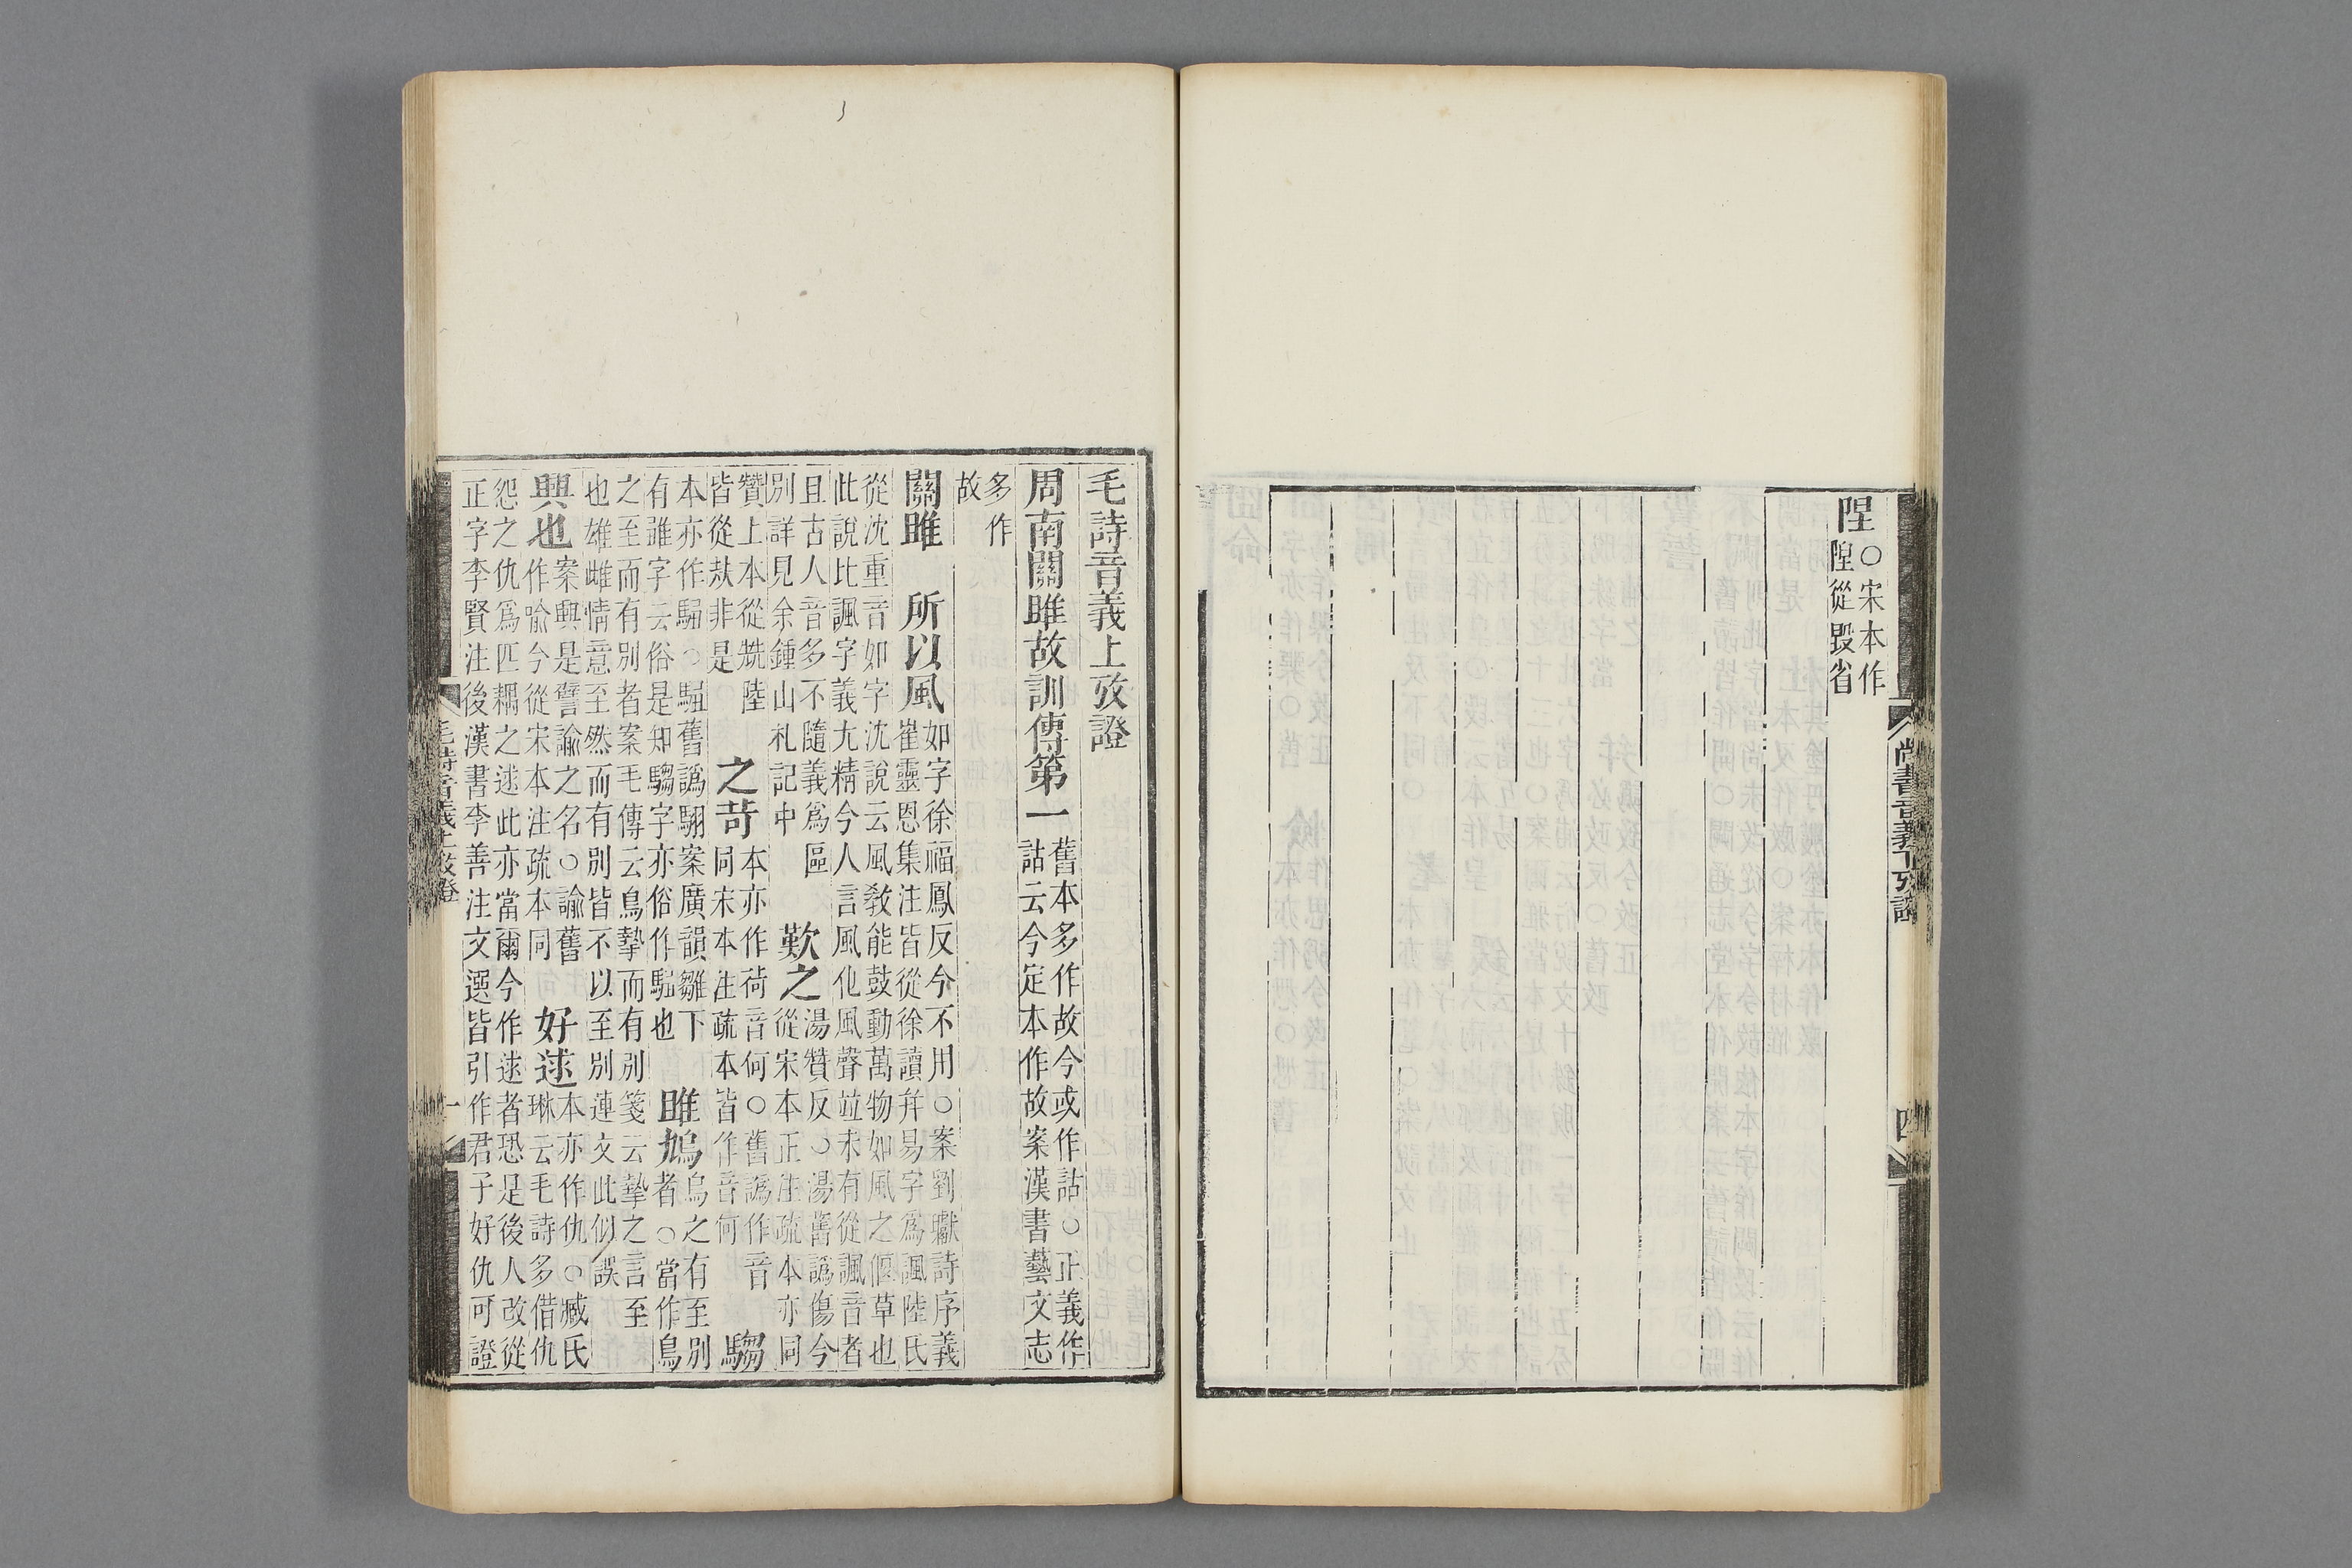 陧
○宋本作
隉從毀省
尚書音義下攷證
四
毛詩音義上攷證
周南關雎故訓傳第一
舊本多作故今或作詁○正義作
詁云今定本作故案漢書藝文志
多作
故
關雎　所以風
如字徐福鳳反今不用○案劉瓛詩序義
崔靈恩集注皆從徐讀幷易字爲諷陸氏
從沈重音如字沈說云風敎能鼓動萬物如風之偃草也
此說比諷字義尤精今人言風化風聲竝未有從諷音者
且古人音多不隨義爲區
別詳見余鍾山札記中
歎之
湯贊反○湯舊譌傷今
從宋本正注疏本亦同
贊上本從兟陸
皆從㚘非是
之苛
本亦作荷音何○舊譌作音
同宋本注疏本皆作音何
騶
本亦作○舊譌案廣韻雛下
有雖字云俗是知騶字亦俗作也
雎鳩
鳥之有至別
者○當作鳥
之至而有別者案毛傳云鳥摯而有別箋云摯之言至
也雄雌情意至然而有別皆不以至別連文此似誤
興也
案興是譬諭之名○諭舊
作喻今從宋本注疏本同
好逑
本亦作仇○臧氏
琳云毛詩多借仇
怨之仇爲匹耦之逑此亦當爾今作逑者恐是後人改從
正字李賢注後漢書李善注文選皆引作君子好仇可證
毛詩音義上攷證
一